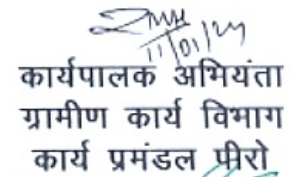 11/01/24
कार्यपालक अभियंता
ग्रामीण कार्य विभाग
कार्य प्रमंडल पीरो